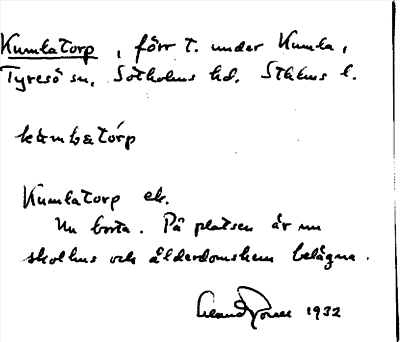 Kumlatorp, förr t. under Kumla,
Tyresö sn, Sotholms hd. Sthlms l.
kũmb&tórp
Kumlatorp ek.
Nu borta. På platsen är nu
skolhus och ålderdomshem belägna.
1932